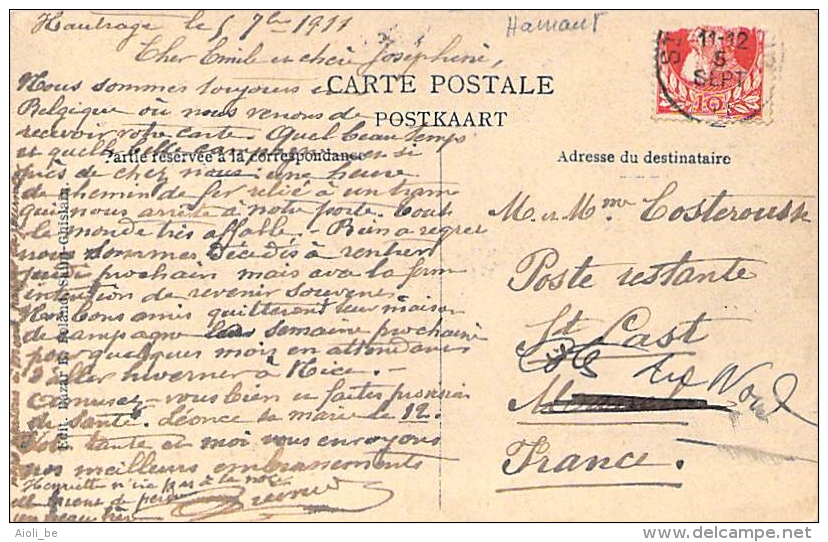 Hautrage le 5 7bre 1911
Hainaut
Cher Emile et chère Joséphine,
11-12
5
SEPT
CARTE POSTALE
POSTKAART
Partie réservée à la correspondance
Adresse du destinataire
Nous sommes toujours en
Belgique où nous venons de
recevoir votre carte. Quel beau temps
et quelle belle campagne si
près de chez nous une heure
de chemin de fer relié à un tram
qui nous arrête à notre porte. Tout
le monde très affable. Bien à regret
nous sommes décidés à rentrer
jeudi prochain mais avec la ferme
intention de revenir souvent.
Nos bons amis quitteront leur maison
de campagne la semaine prochaine
pour quelques mois en attendant
d'aller hiverner à Nice. -
Amusez-vous bien et faites provision
de santé. Léonce se marie le 12.
Votre tante et moi vous envoyons
nos meilleurs embrassements
Henriette n'ira pas à la noce
M. et Mme Costerousse
Poste restante
St Cast
Côte du Nord
France.
Edit. Bazar E. Roland, Saint-Ghislain.
Aioli_be
www.delcampe.net